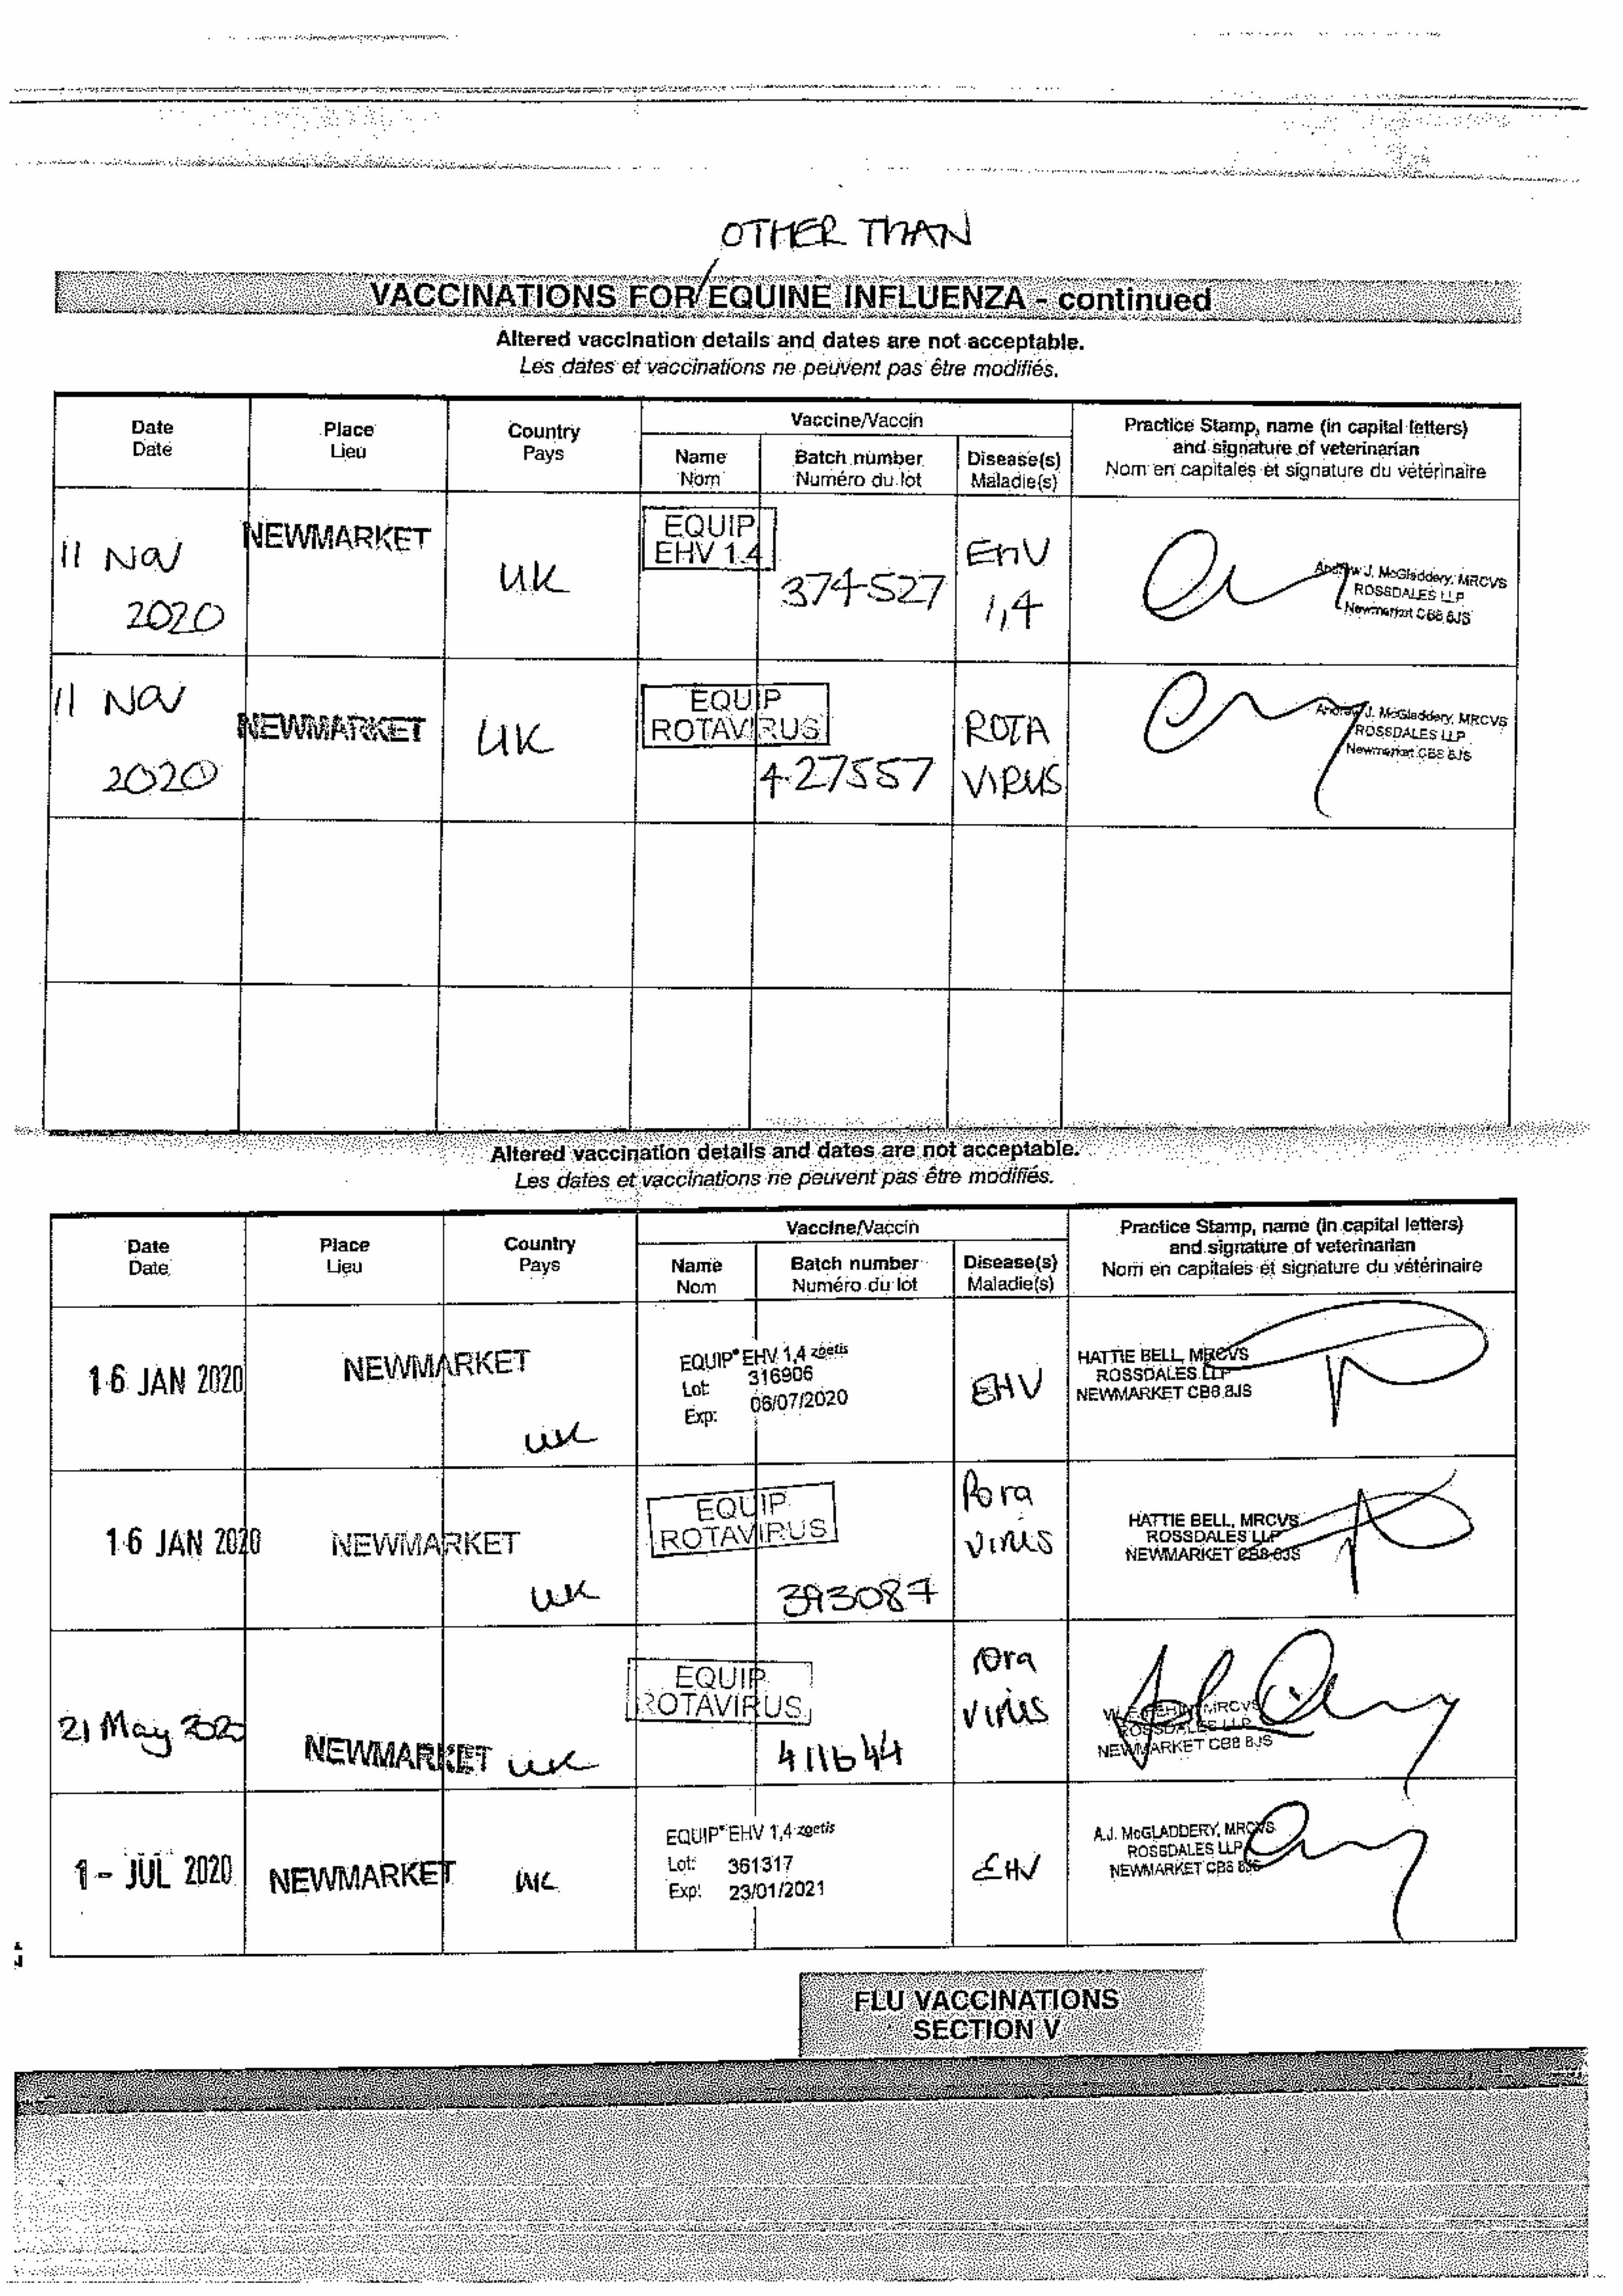 OTHER THAN
VACCINATIONS FOR/EQUINE INFLUENZA - continued
Altered vaccination details and dates are not acceptable.
Les dates et vaccinations ne peuvent pas être modifiés.
Date
Date
Place
Lieu
Country
Pays
Vaccine/Vaccin
Name
Nom
Batch number
Numéro du lot
Disease(s)
Maladie(s)
Practice Stamp, name (in capital letters)
and signature of veterinarian
Nom en capitales et signature du vétérinaire
11 Nov
2020
NEWMARKET
UK
EQUIP
EHV 1.4
374527
EHV
1,4
Andrew J. McGladdery, MRCVS
ROSSDALES LLP
Newmarket CB8 8JS
11 Nov
2020
NEWMARKET
UK
EQUIP
ROTAVIRUS
427557
ROTA
VIRUS
Andrew J. McGladdery, MRCVS
ROSSDALES LLP
Newmarket CB8 8JS
Altered vaccination details and dates are not acceptable.
Les dates et vaccinations ne peuvent pas être modifiés.
Date
Date
Place
Lieu
Country
Pays
Vaccine/Vaccin
Name
Nom
Batch number
Numéro du lot
Disease(s)
Maladie(s)
Practice Stamp, name (in capital letters)
and signature of veterinarian
Nom en capitales et signature du vétérinaire
16 JAN 2020
NEWMARKET
UK
EQUIP® EHV 1,4 zoetis
Lot: 316906
Exp: 06/07/2020
EHV
HATTIE BELL, MRCVS
ROSSDALES LLP
NEWMARKET CB8 8JS
16 JAN 2020
NEWMARKET
UK
EQUIP
ROTAVIRUS
393087
Rota
virus
HATTIE BELL, MRCVS
ROSSDALES LLP
NEWMARKET CB8 8JS
21 May 2020
NEWMARKET
UK
EQUIP
ROTAVIRUS
411644
rota
virus
MRCVS
ROSSDALES LLP
NEWMARKET CB8 8JS
1 - JUL 2020
NEWMARKET
UK
EQUIP® EHV 1,4 zoetis
Lot: 361317
Exp: 23/01/2021
EHV
A.J. McGLADDERY, MRCVS
ROSSDALES LLP
NEWMARKET CB8 8JS
FLU VACCINATIONS
SECTION V